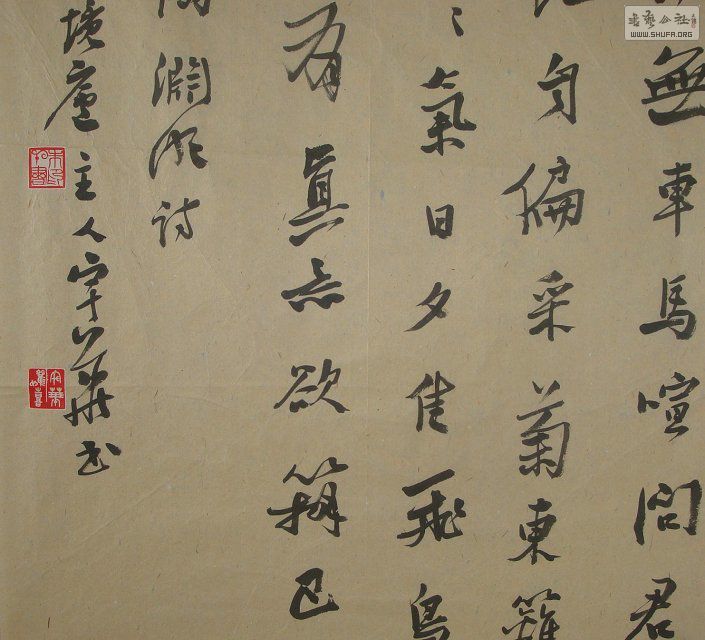 無車馬喧問君
自偏采菊東籬
氣日夕佳飛鳥
有真意欲辨已
淵明詩
廬主人
書
書藝公社
WWW.SHUFA.ORG